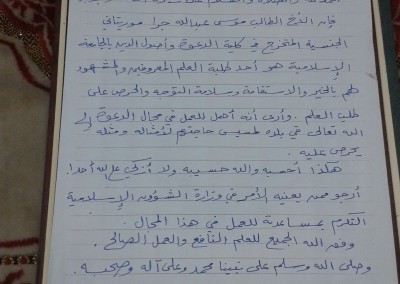 فإن الأخ الطالب موسى عبدالله جرا موريتاني
الجنسية المتخرج في كلية الدعوة وأصول الدين بالجامعة
الإسلامية هو أحد طلبة العلم المعروفين والمشهود
لهم بالخير والاستقامة وسلامة التوجه والحرص على
طلب العلم. وأرى أنه أهل للعمل في مجال الدعوة إلى
الله تعالى في بلاده لمسيس حاجتهم لأمثاله ومثله
يحرص عليه.
هكذا أحسبه والله حسيبه ولا أزكي على الله أحدا.
أرجو ممن يعنيه الأمر في وزارة الشؤون الإسلامية
التكرم بمساعدته للعمل في هذا المجال.
وفق الله الجميع للعلم النافع والعمل الصالح.
وصلى الله وسلم على نبينا محمد وعلى آله وصحبه.